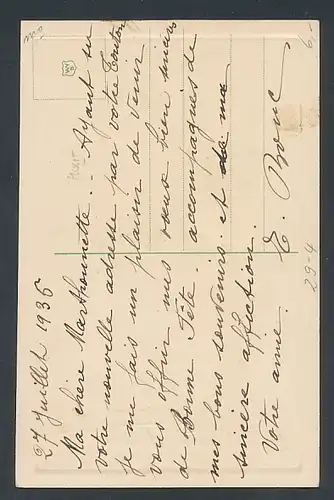 27 Juillet 1936
Ma chère Marthounette. - Ayant su
votre nouvelle adresse par votre Tonton
je me fais un plaisir de venir
vous offrir mes vœux bien sincères
de Bonne Fête. accompagnés de
mes bons souvenirs et de ma
sincère affection.
Votre amie.
E.
29-4